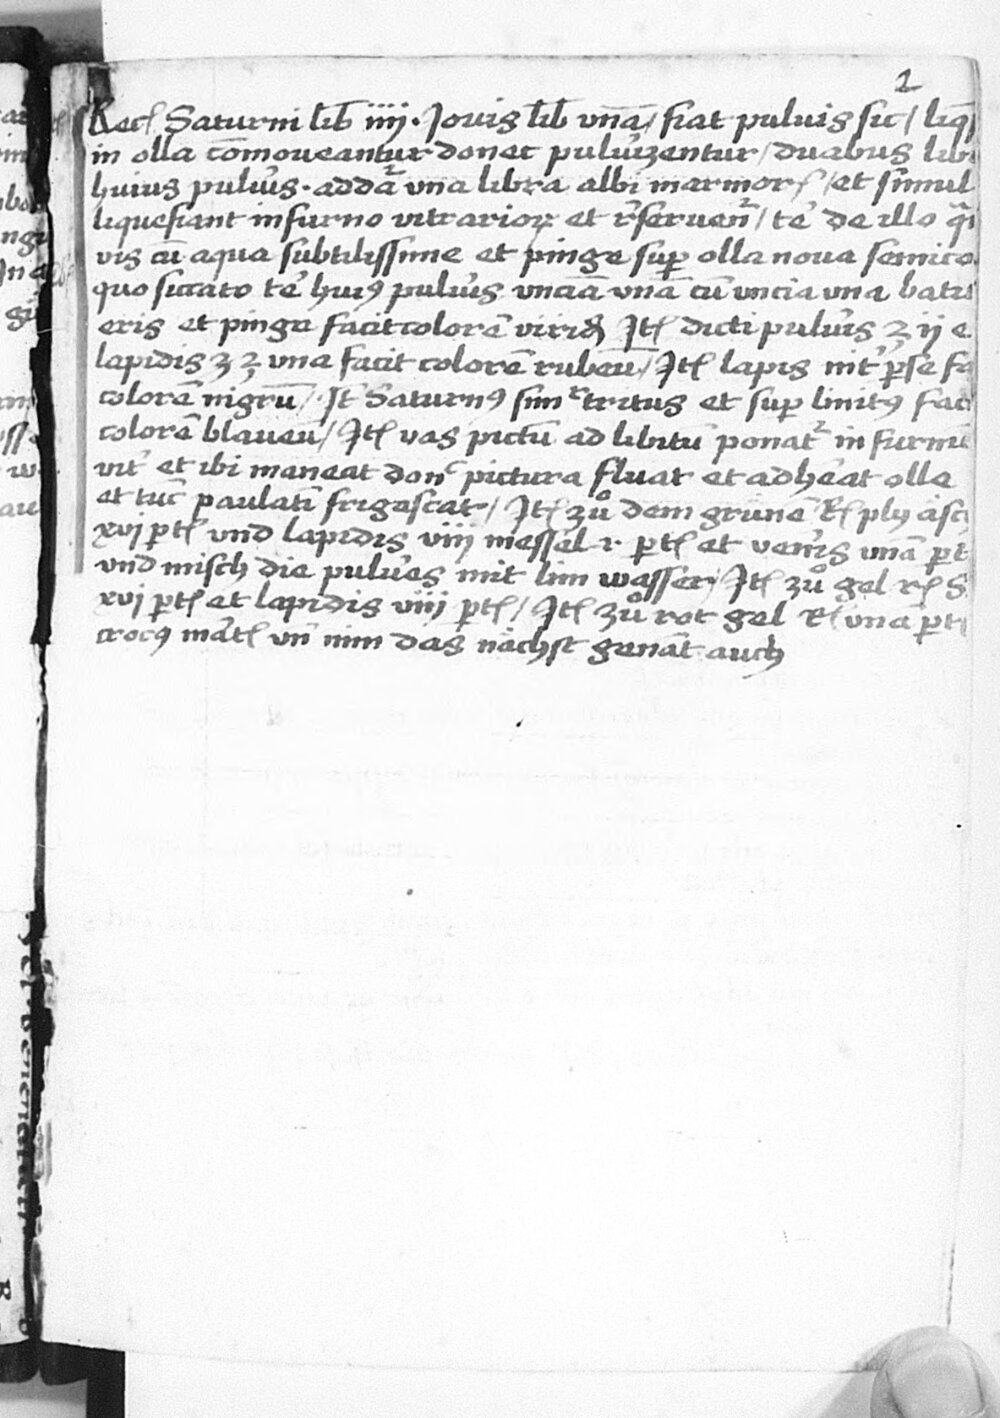 2
Recꝭ Saturni lib̄ iiij . Jouis lib̄ vnā / fiat puluis sic / liq̄
in olla cōmoueantur donec puluizentur / duabus libr
huius puluis . addat᷑ vna libra albi marmorꝭ / et simul
liquefiant in furno vitrarioꝝ et r̕seruent᷑ / te̕ de illo q̄
vis cū aqua subtilissime et pinge suꝑ olla noua semico
quo siccato te̕ huiꝰ pulu̕is vnciā vnā cū vncia vna batu
eris et pinge facit colorē viridē Itꝭ dicti pulu̕is ʒ ij e
lapidis ʒ vna facit colorē rubeū / Itꝭ lapis nit̕ ꝑse fa
colorē nigrū / It̄ Saturnꝰ simr̄ tritus et suꝑ linitꝰ faci
colorē blaueū / Itꝭ vas pictū ad libitū ponat᷑ in furnū
vit̕ et ibi maneat donc̄ pictura fluat et adhe̕at olle
et tūc paulatī frigescat / Itꝭ zů dem grüne Rꝭ plÿ äsc
xvj ꝑtꝭ vnd lapidis viij messel ꝛ ꝑtꝭ et ven̕is vnā ꝑt
vnd misch die pulu̕es mit lim wasser / Itꝭ zů gel rꝭ S
xvj ꝑtꝭ et lapidis viij ꝑtꝭ / Itꝭ zů rot gel Rꝭ vna ꝑt
crocꝰ mātꝭ vn̄ nim das nächst genāt auch